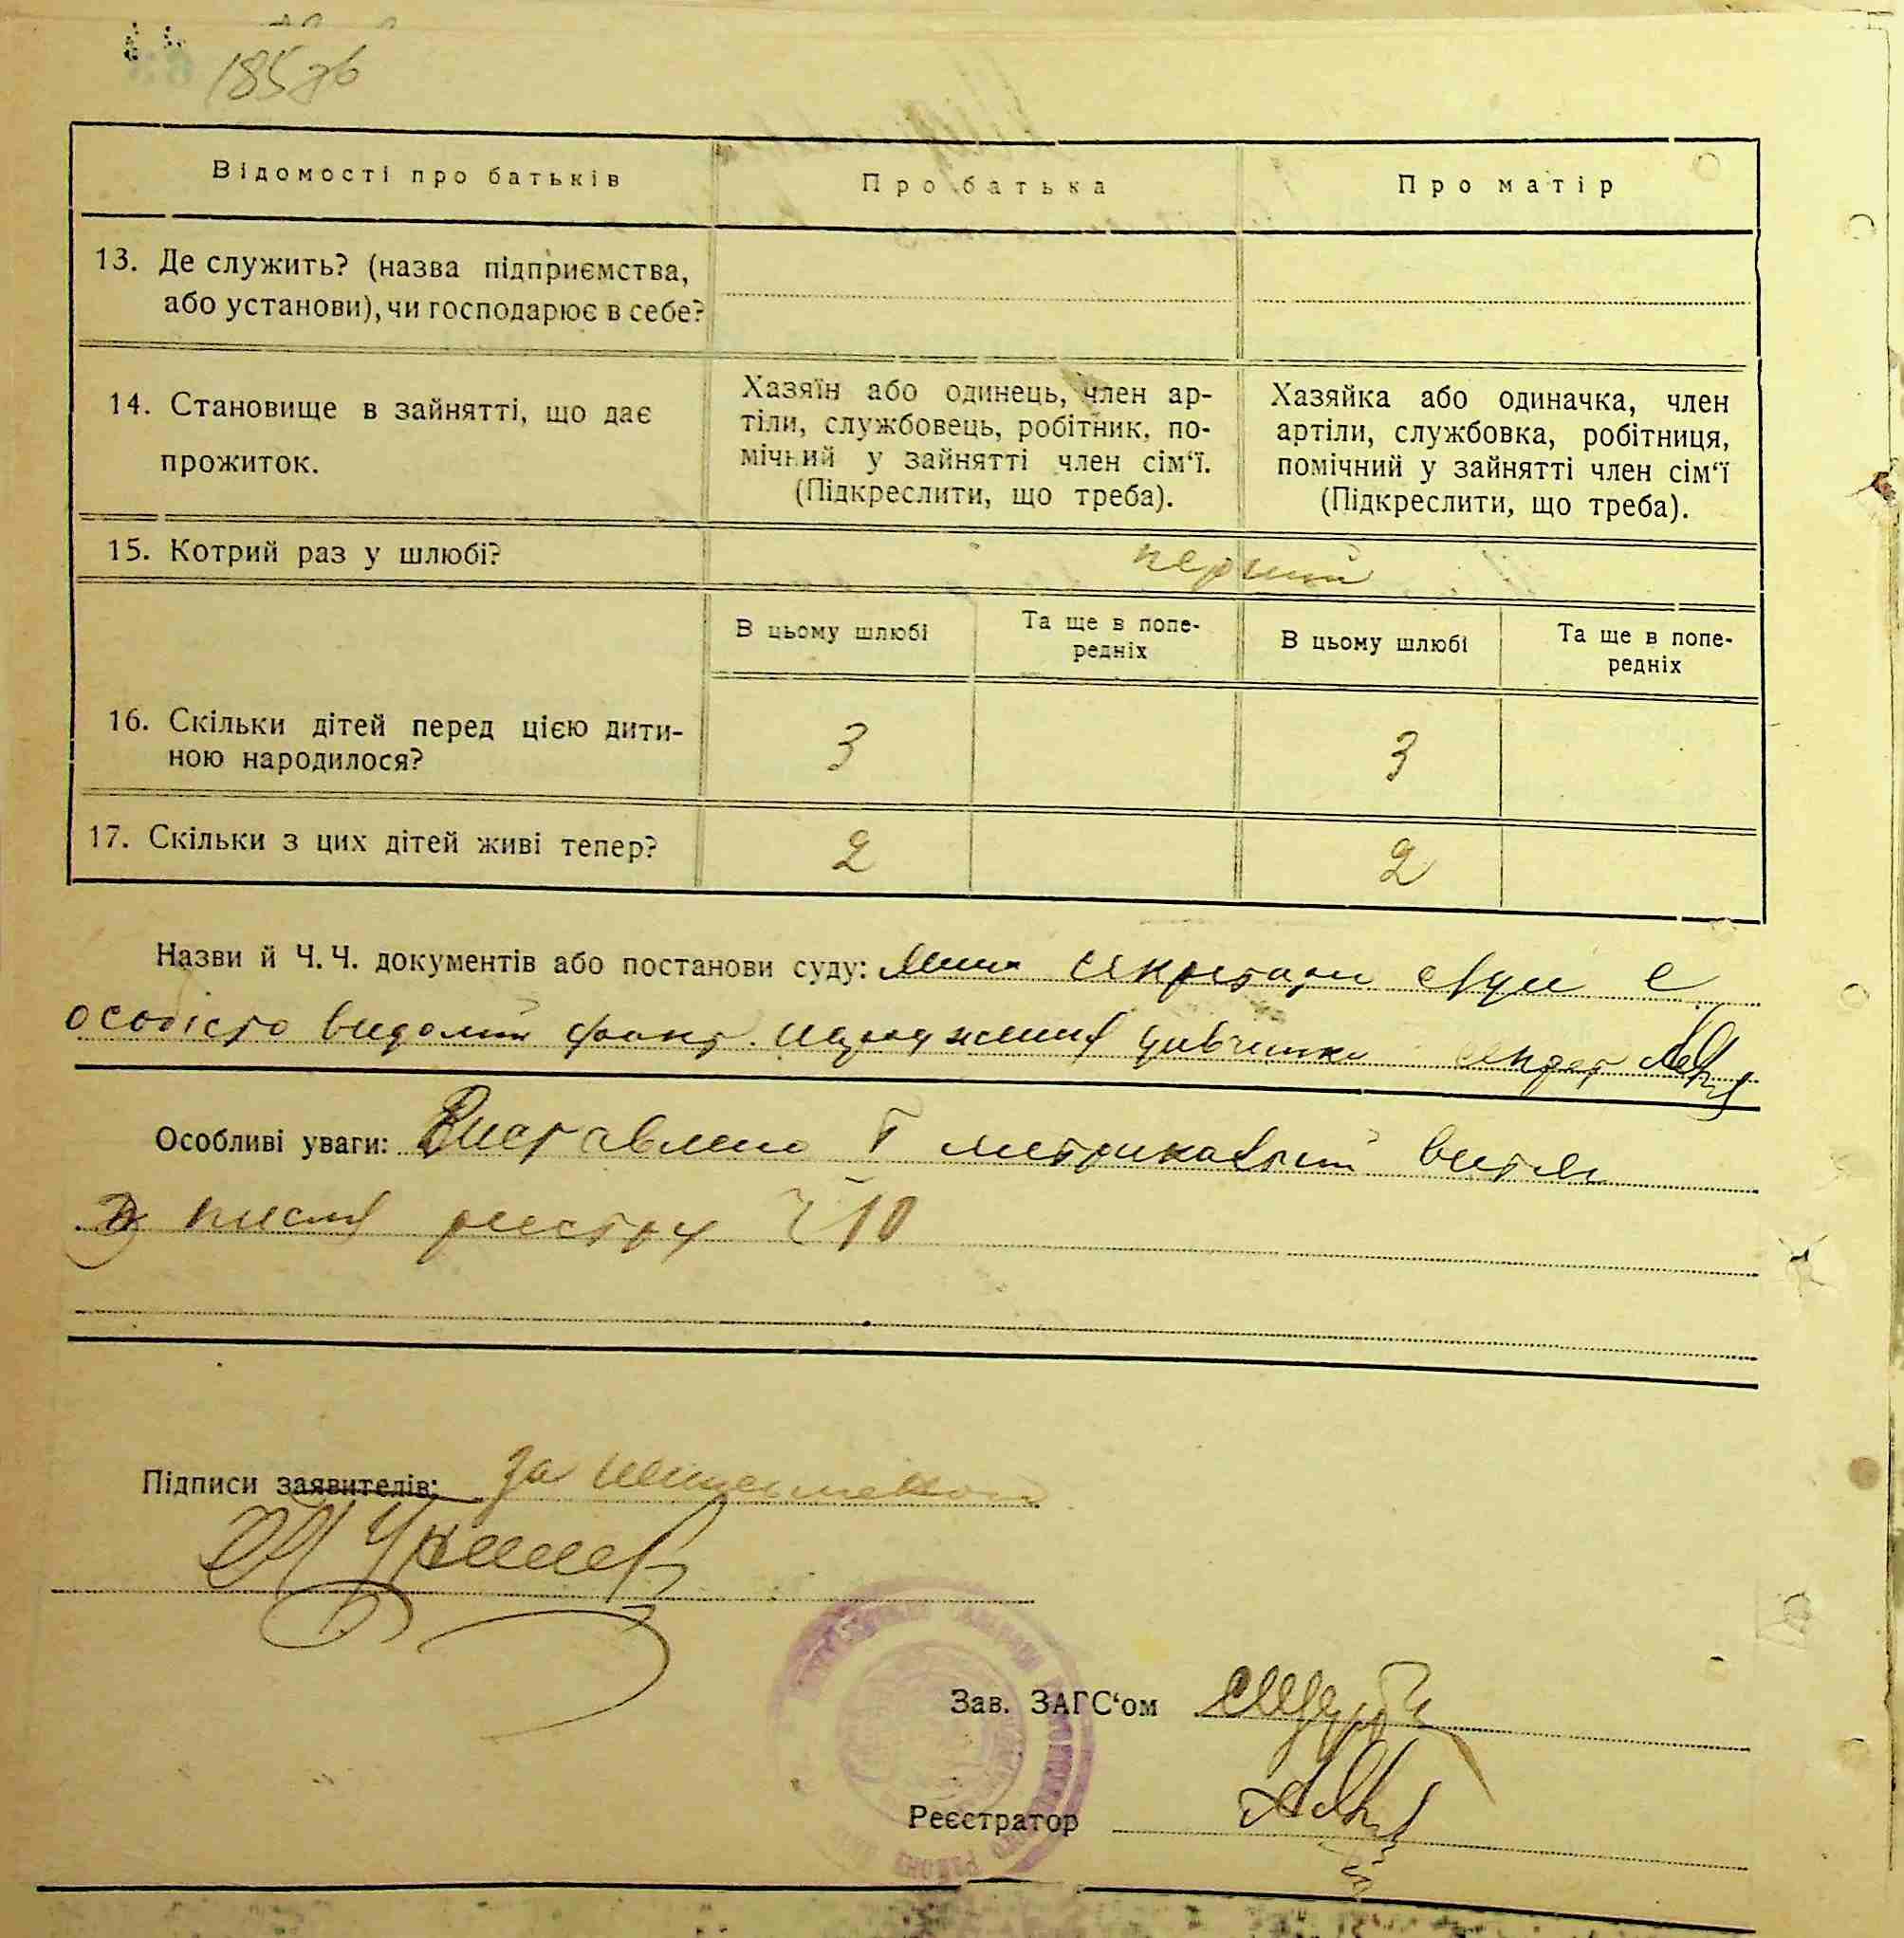 185 зв
Відомості про батьків
Про батька
Про матір
13. Де служить? (назва підприємства,
або установи), чи господарює в себе?
14. Становище в зайнятті, що дає
прожиток.
Хазяїн або одинець, член ар-
тіли, службовець, робітник, по-
мічний у зайнятті член сім‘ї.
(Підкреслити, що треба).
Хазяйка або одиначка, член
артіли, службовка, робітниця,
помічний у зайнятті член сім‘ї
(Підкреслити, що треба).
15. Котрий раз у шлюбі?
перший
В цьому шлюбі
Та ще в попе-
редніх
В цьому шлюбі
Та ще в попе-
редніх
16. Скільки дітей перед цією дити-
ною народилося?
3
3
17. Скільки з цих дітей живі тепер?
2
2
Назви й Ч.Ч. документів або постанови суду: секретарю є
особісто видомий факт народження дівчинки секрет
Особливі уваги: Виставлено метрикальний витяг
реєстру 10
Підписи заявителів: за
Зав. ЗАГС‘ом
Реєстратор